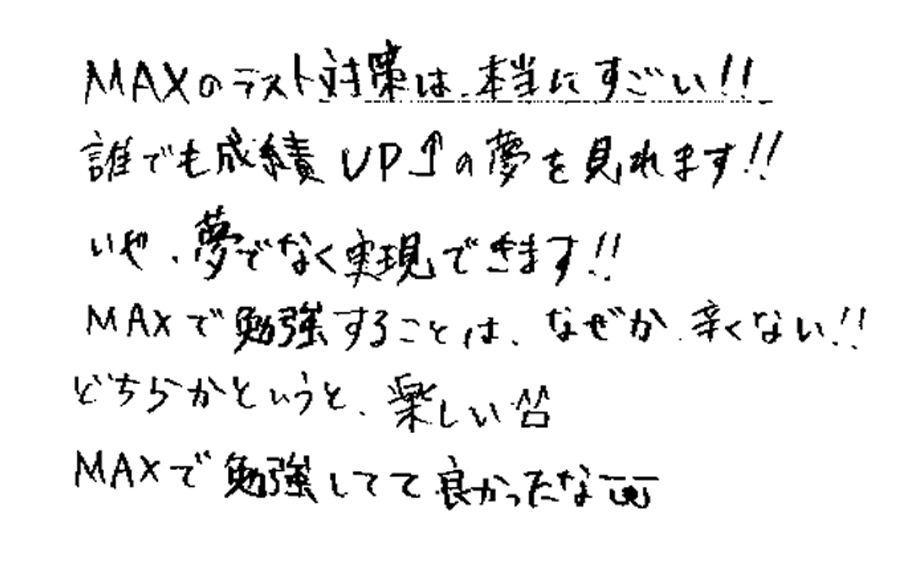 MAXのテスト対策は、本当にすごい!!
誰でも成績UP↑の夢を見れます!!
いや、夢でなく実現できます!!
MAXで勉強することは、なぜか、辛くない!!
どちらかというと、楽しい^^
MAXで勉強してて良かったな